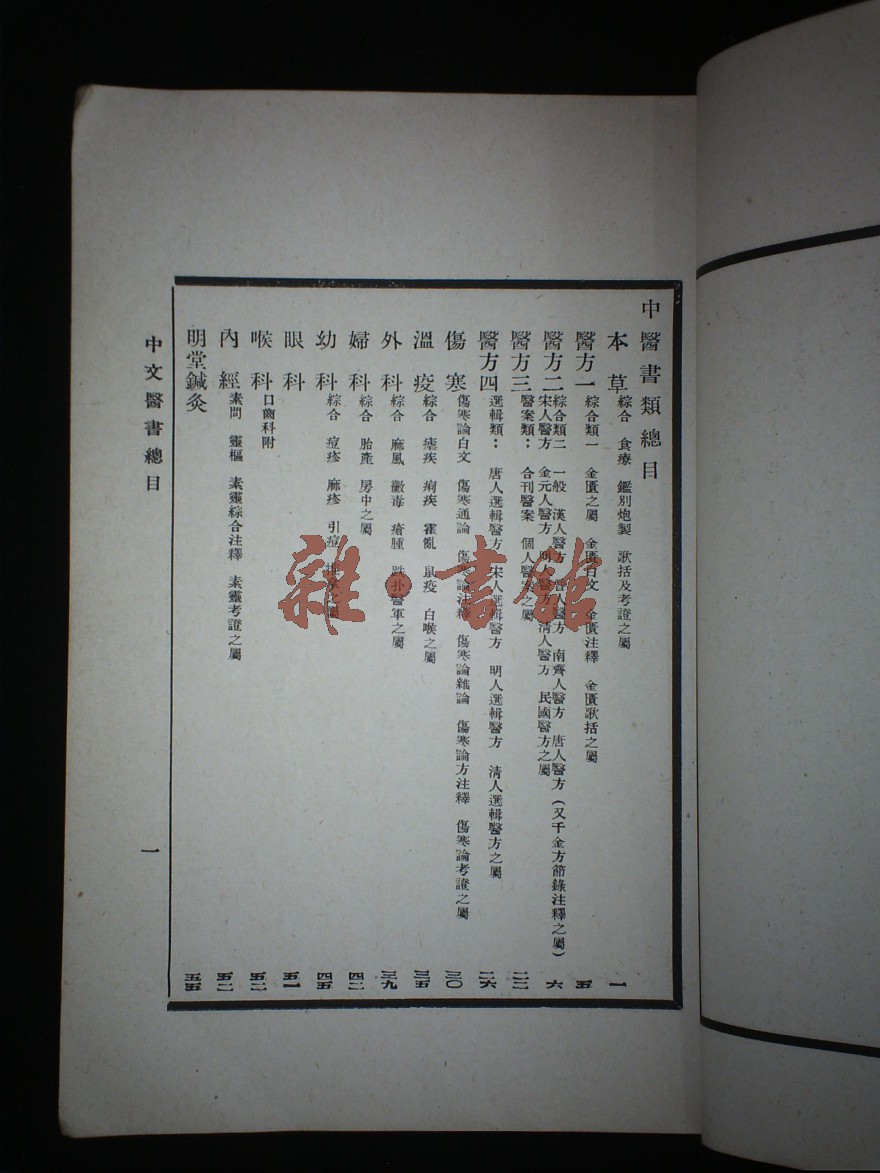 中醫書類總目
本草 綜合 食療 鑑別炮製 歌括及考證之屬 一
醫方一 綜合類一 金匱之屬 金匱白文 金匱注釋 金匱歌括之屬 五
醫方二 綜合類二 一般 漢人醫方 晉人醫方 南齊人醫方 唐人醫方(又千金方節錄注釋之屬)
宋人醫方 金元人醫方 明人醫方 清人醫方 民國醫方之屬 六
醫方三 醫案類: 合刊醫案 個人醫案之屬 二二
醫方四 選輯類: 唐人選輯醫方 宋人選輯醫方 明人選輯醫方 清人選輯醫方之屬 二六
傷寒 傷寒論白文 傷寒通論 傷寒論注釋 傷寒論雜論 傷寒論方注釋 傷寒論考證之屬 三〇
溫疫 綜合 瘧疾 痢疾 霍亂 鼠疫 白喉之屬 三五
外科 綜合 麻風 黴毒 瘡腫 跌扑醫軍之屬 三九
婦科 綜合 胎產 房中之屬 四二
幼科 綜合 痘疹 麻疹 引痘 四五
眼科 五一
喉科 口齒科附 五二
內經 素問 靈樞 素靈綜合注釋 素靈考證之屬 五二
明堂鍼灸 五五
中文醫書總目
一
雜·書館